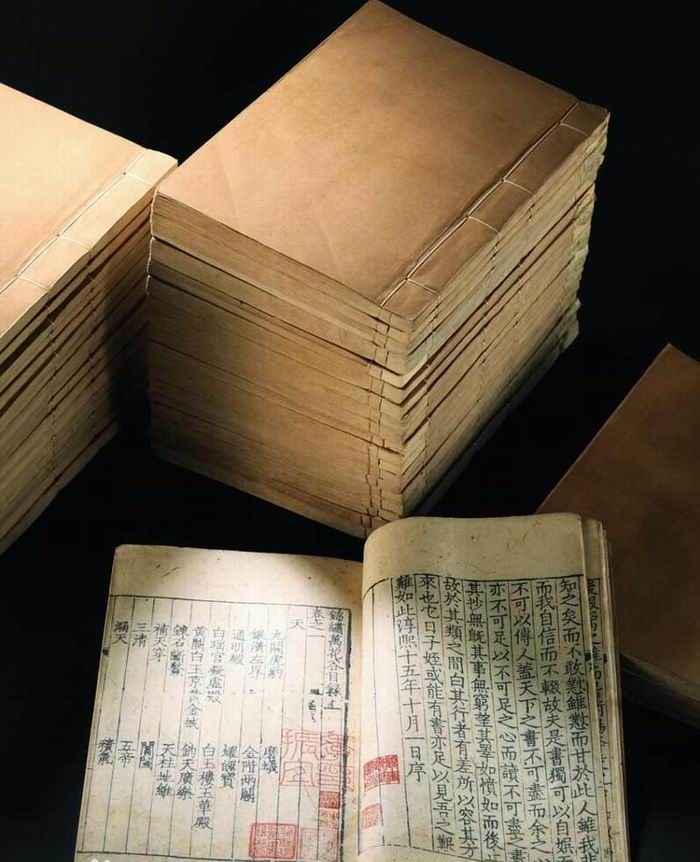 知之矣而不敢懟雖懟而甘於此人雖我
而我自信而不輟故夫是書獨可以自娛
不可以傳人蓋天下之書不可盡而余之
亦不可足以不可足之心而讀不可盡之書
其抄無既其事無窮望其畧如憒如而後止
故於其類之間白其行者有差所以容其方
來也屯日子姪或能有書亦足以見吾之艱
難如此淳熙十五年十月一日序
錦繡萬花谷目錄上
卷之一
天
九關虎豹 磨蟻
銀潢左界 金階兩闕
通明殿 耀魄寶
白瑶宮凝虛殿 白玉樓玉華殿
白玉京黃金城 鈞天廣樂
鍊石斷鼇 天柱地維
補天穿 閶闔
三清 五帝
漏天 積氣